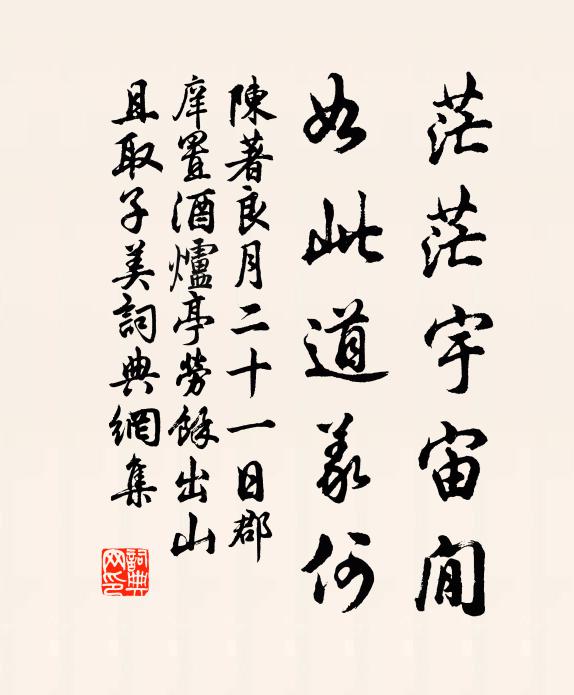 茫茫宇宙間
如此道義何
陳著良月二十一日郡
庠置酒爐亭勞餘出山
且取子美詞典網集
詞典网印